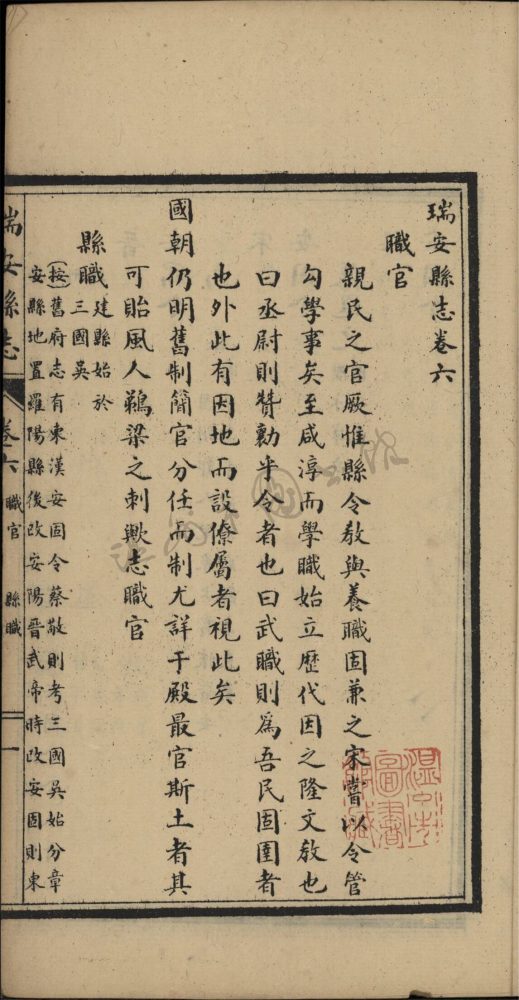 瑞安縣志卷六
職官
親民之官厥惟縣令教與養職固兼之宋嘗以令管
勾學事矣至咸淳而學職始立歷代因之隆文教也
曰丞尉則贊勷乎令者也曰武職則為吾民固圉者
也外此有因地而設僚屬者視此矣
國朝仍明舊制簡官分任而制尤詳于殿最官斯土者其
可貽風人鵜梁之刺歟志職官
縣職建縣始於
三國吳
(按)舊府志有東漢安固令蔡敬則考三國吳始分章
安縣地置羅陽縣後改安陽晉武帝時改安固則東
瑞安縣志
卷六
職官
縣職
一
溫州市
圖書